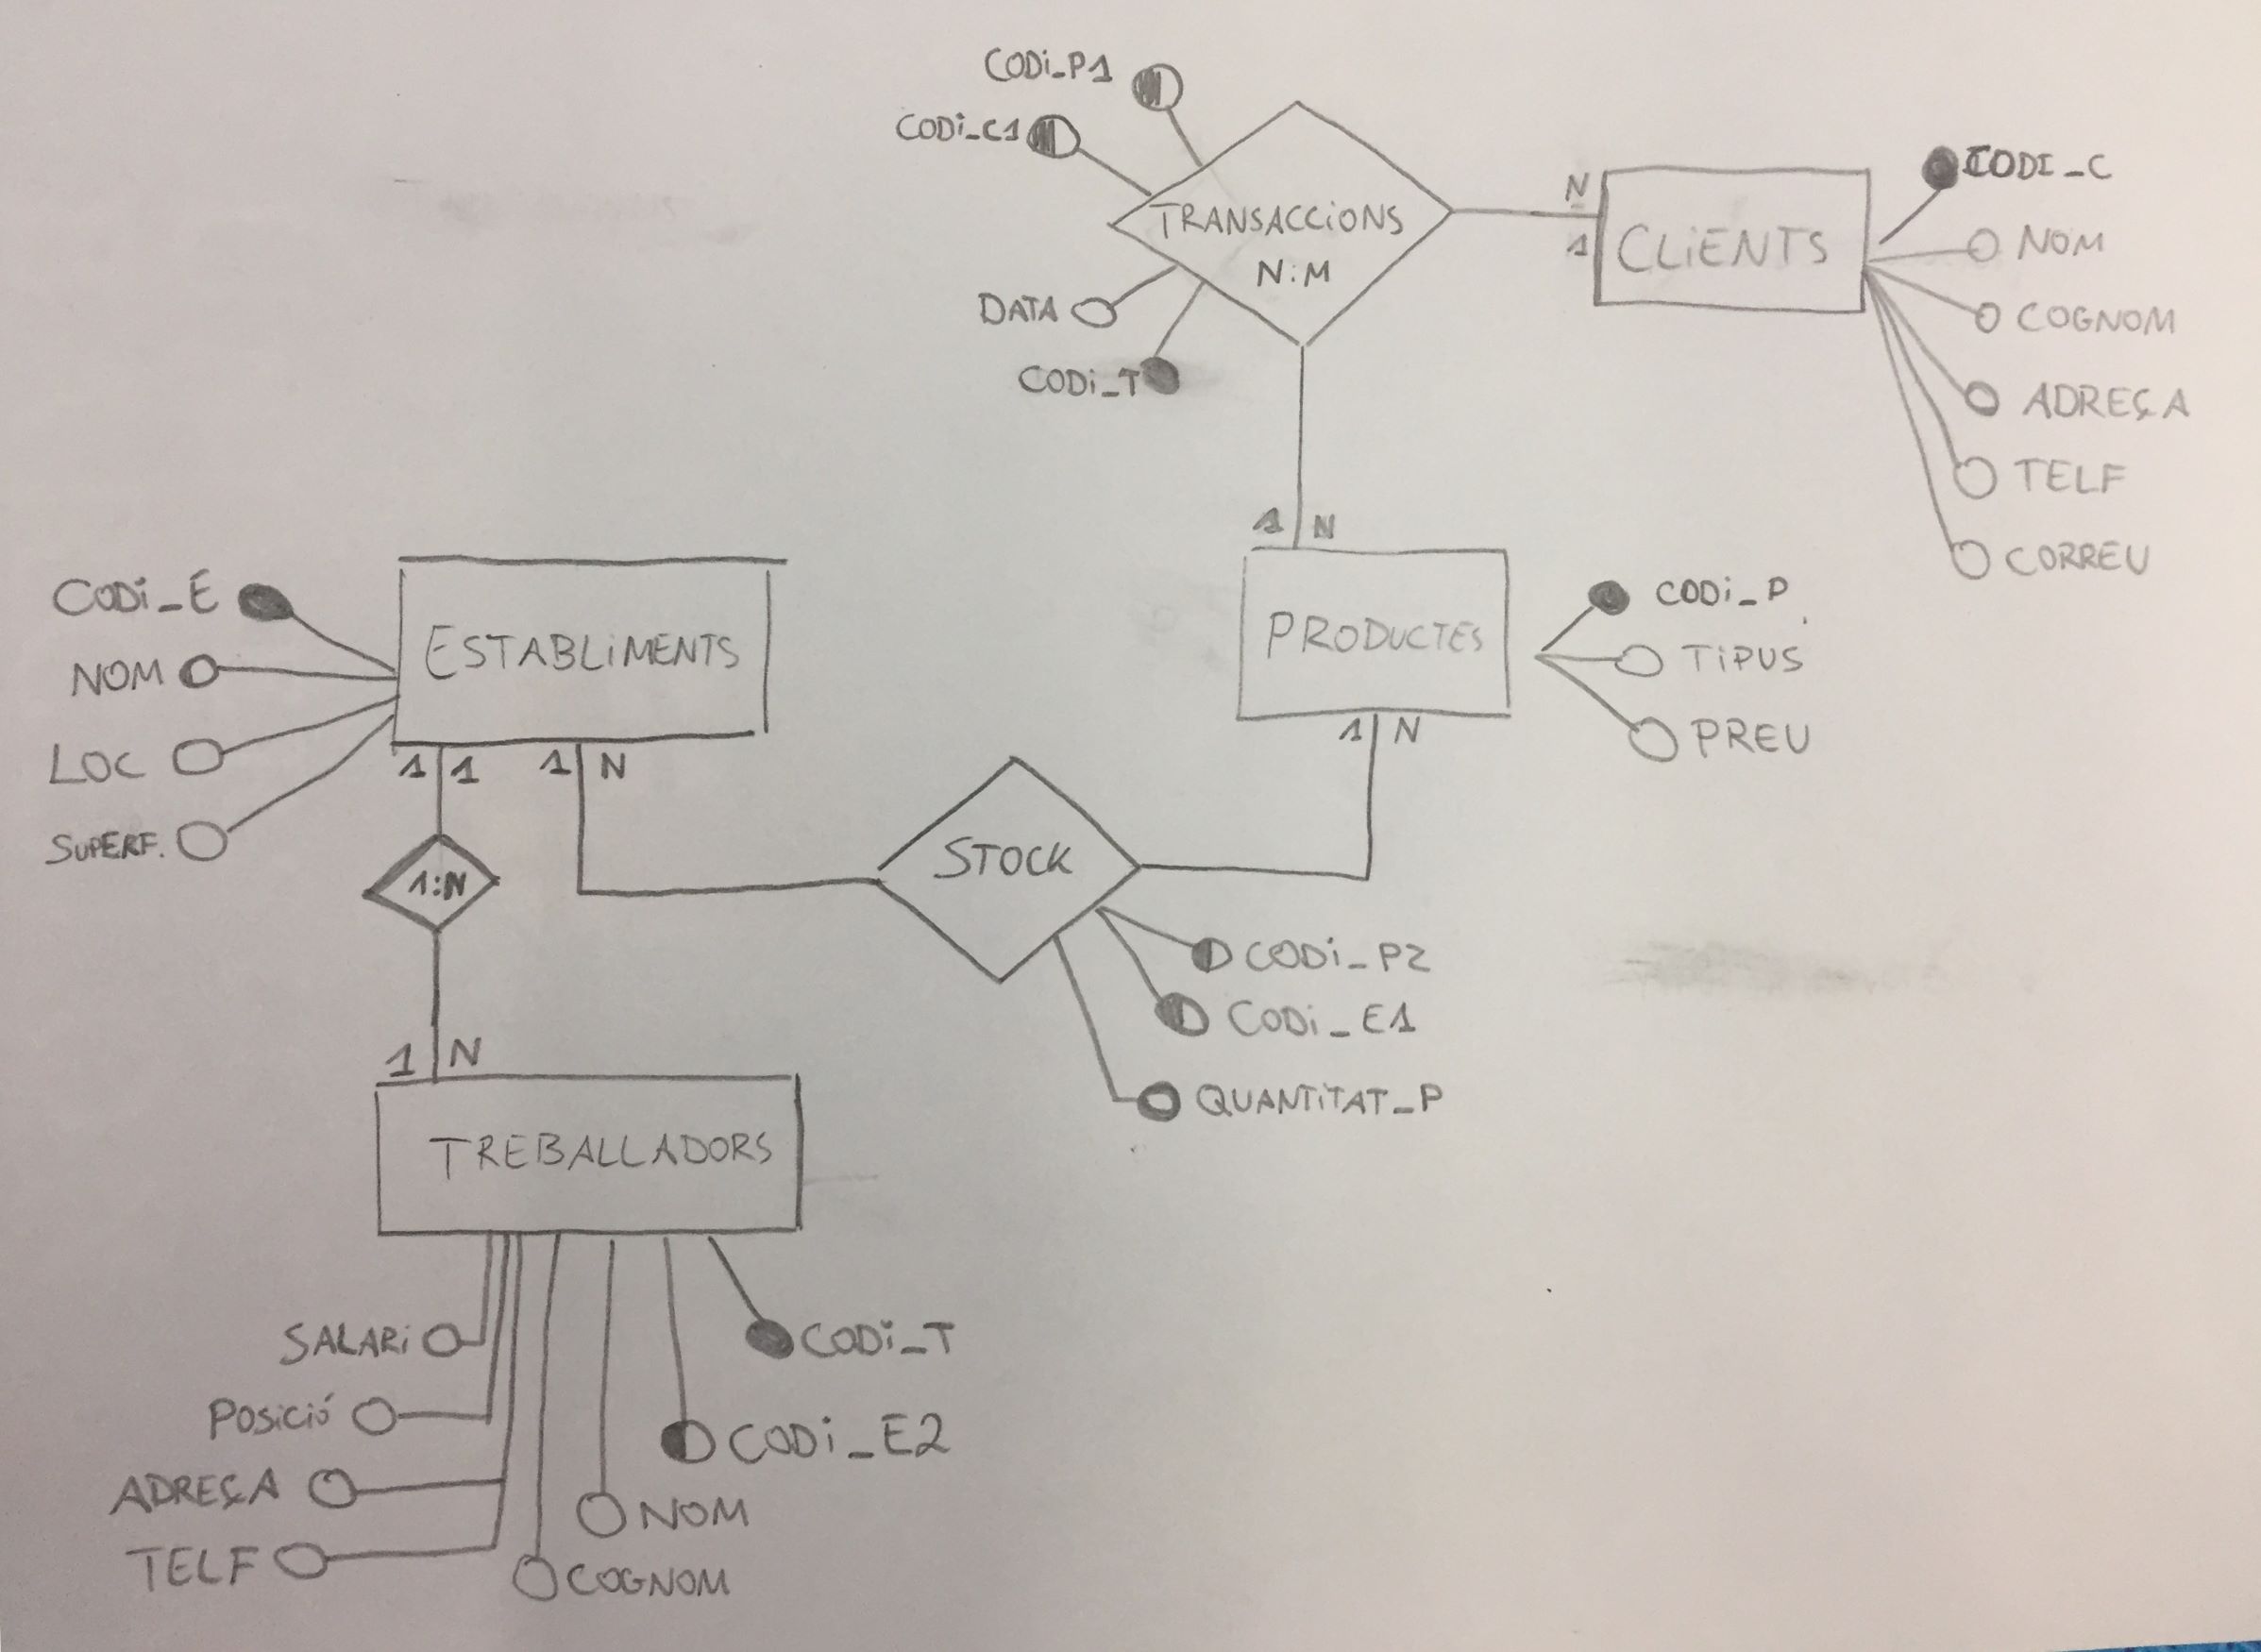 CODi_P1
CODi_C1
TRANSACCiONS
N:M
DATA
CODi_T
N
1
CLiENTS
CODI_C
NOM
COGNOM
ADREÇA
TELF
CORREU
1 N
PRODUCTES
CODi_P
TiPUS
PREU
1 N
CODi_E
NOM
LOC
SUPERF.
ESTABLiMENTS
1 1
1 N
1:N
STOCK
CODi_P2
CODi_E1
QUANTiTAT_P
1 N
TREBALLADORS
SALARi
POSiCiÓ
ADREÇA
TELF
COGNOM
NOM
CODi_E2
CODi_T